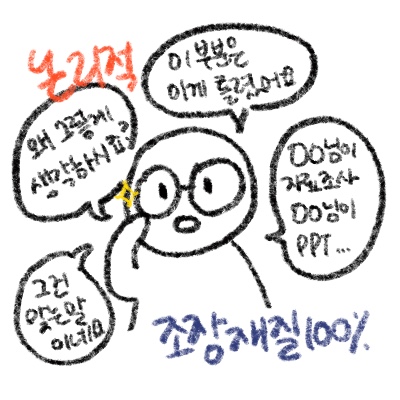 논리적
이 부분은
이게 틀렸어요
왜 그렇게
생각하시죠?
OO님이
자료조사
OO님이
PPT...
그건
맞는 말
이네요
조장재질100%